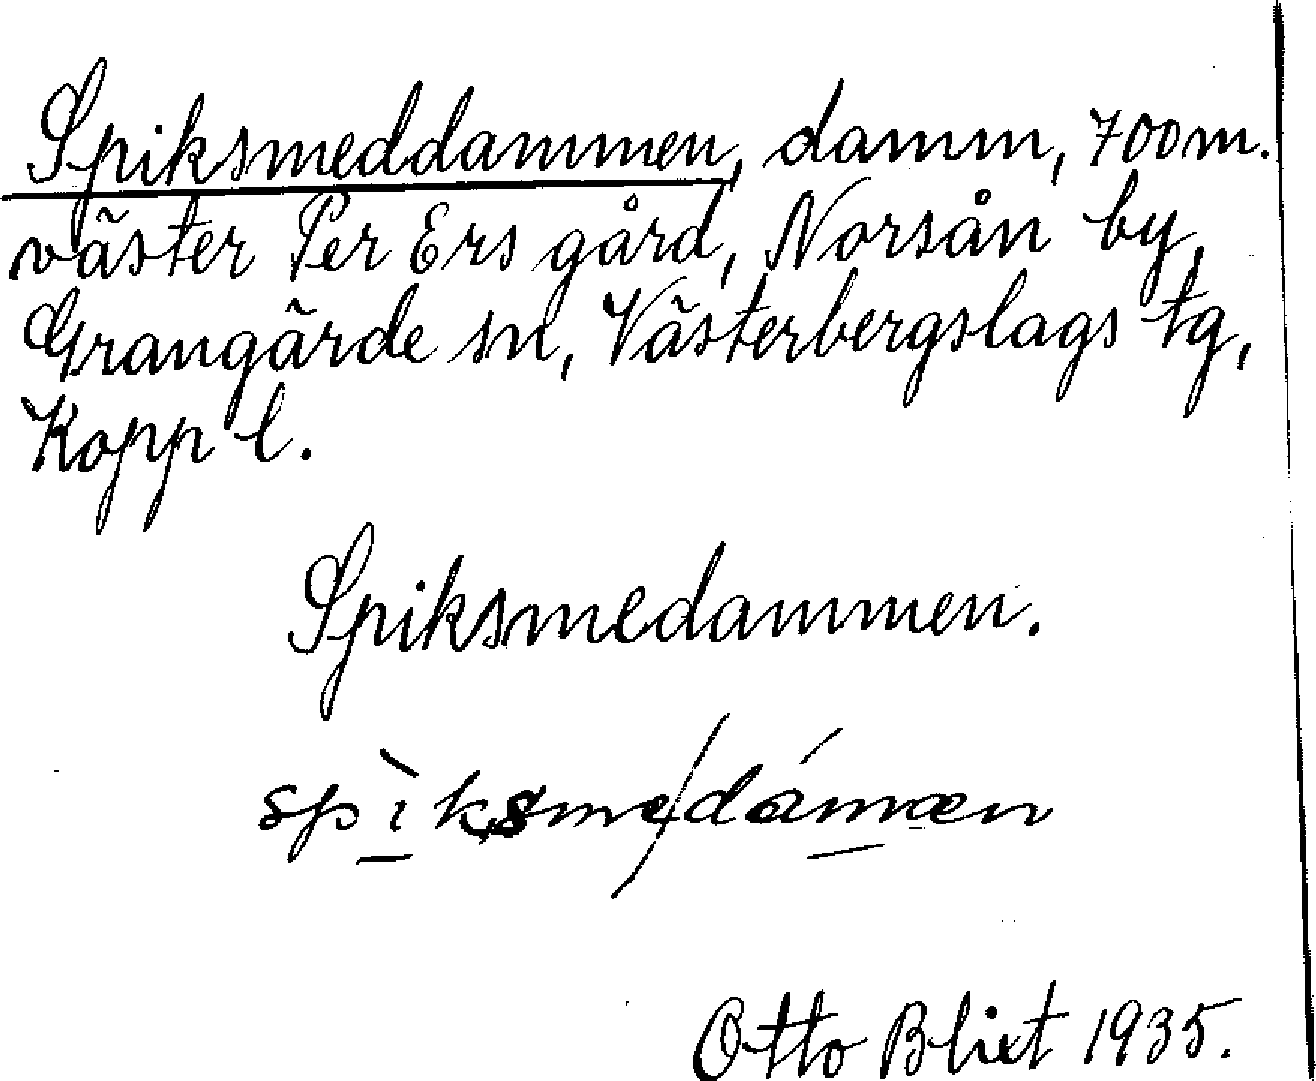 Spiksmeddammen, damm, 700 m.
väster Per Ers gård, Norsån by,
Grangärde sn, Västerbergslags tg,
Kopp l.
Spiksmedammen.
spìksme/dámæn
Otto Blixt 1935.